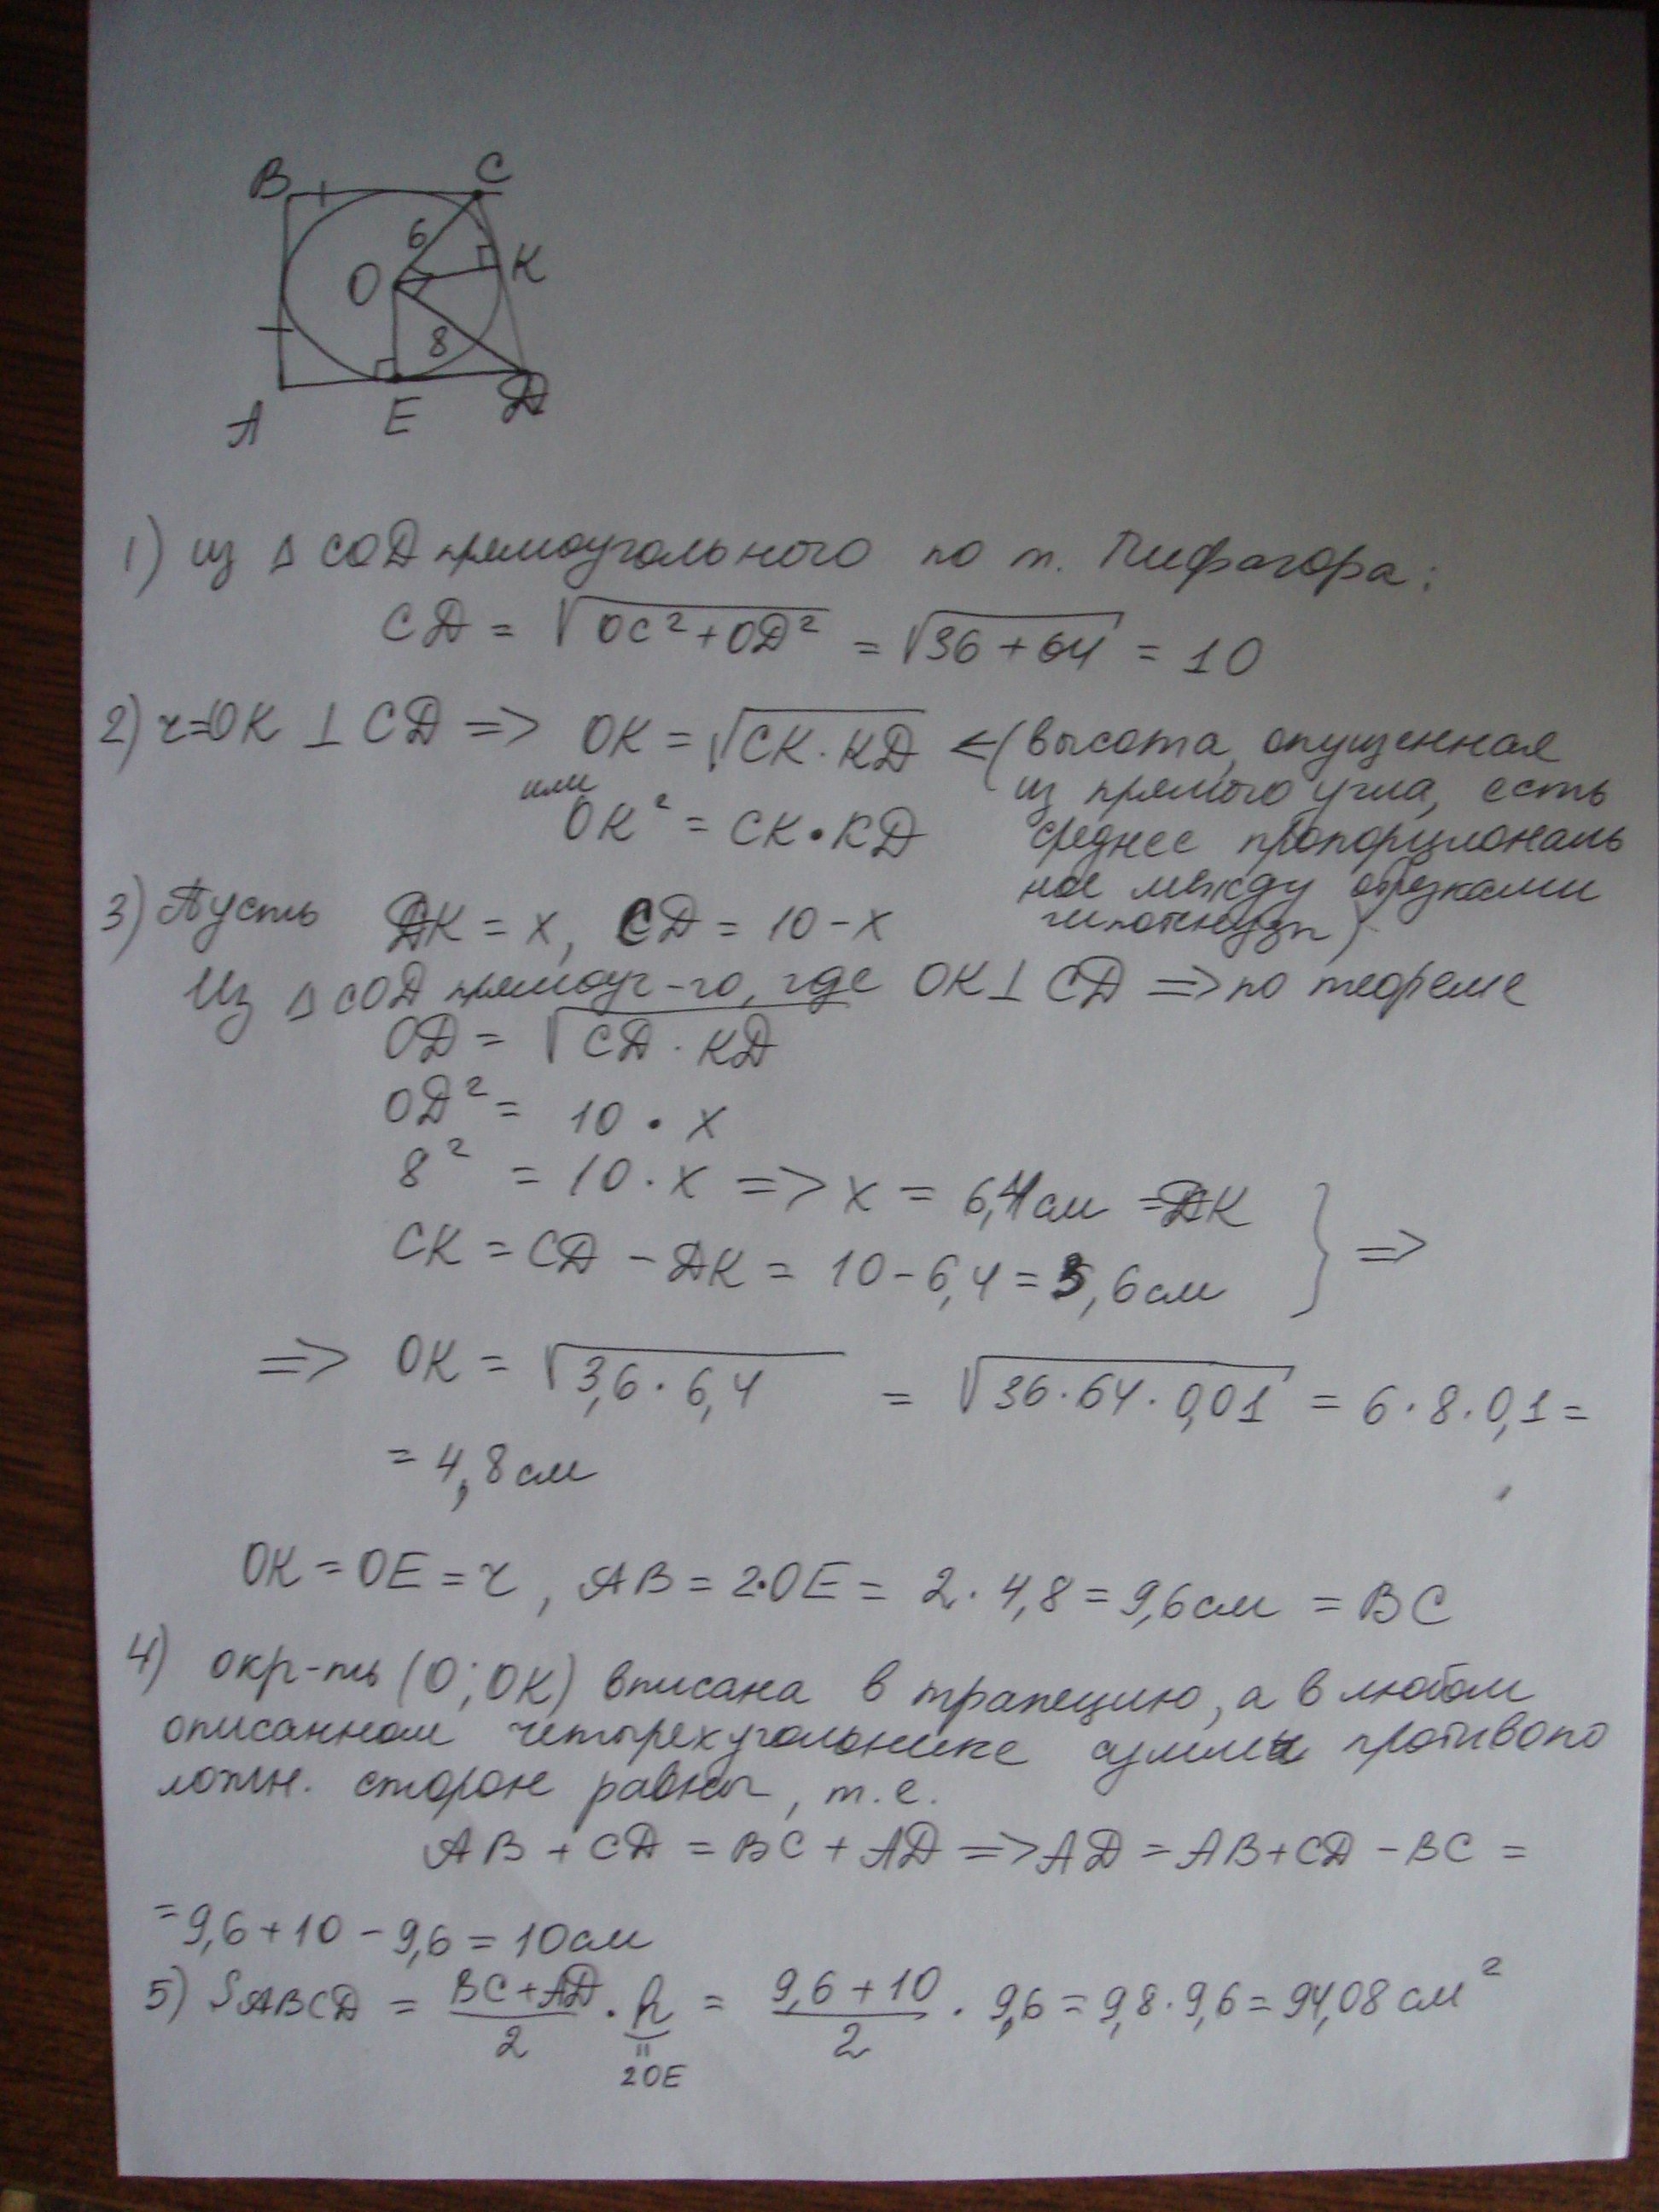 B C
6
O K
8
A E D
1) из Δ COD прямоугольного по т. Пифагора:
CD = √OC² + OD² = √36 + 64 = 10
2) r=OK ⊥ CD => OK = √CK · KD <= (высота, опущенная
из прямого угла, есть
или
OK² = CK • KD среднее пропорциональ
ное между отрезками
3) Пусть DK = x, CD = 10 - x гипотенузы)
Из Δ COD прямоуг-го, где OK ⊥ CD => по теореме
OD = √CD · KD
OD² = 10 • x
8² = 10 · x => x = 6,4 см = DK
CK = CD - DK = 10 - 6,4 = 3,6 см } =>
=> OK = √3,6 · 6,4 = √36 · 64 · 0,01 = 6 · 8 · 0,1 =
= 4,8 см
OK = OE = r, AB = 2•OE = 2 · 4,8 = 9,6 см = BC
4) окр-ть (O; OK) вписана в трапецию, а в любом
описанном четырехугольнике суммы противопо
ложн. сторон равны, т.е.
AB + CD = BC + AD => AD = AB + CD - BC =
= 9,6 + 10 - 9,6 = 10 см
5) SABCD = BC + AD / 2 · h = 9,6 + 10 / 2 · 9,6 = 9,8 · 9,6 = 94,08 см²
=
2OE